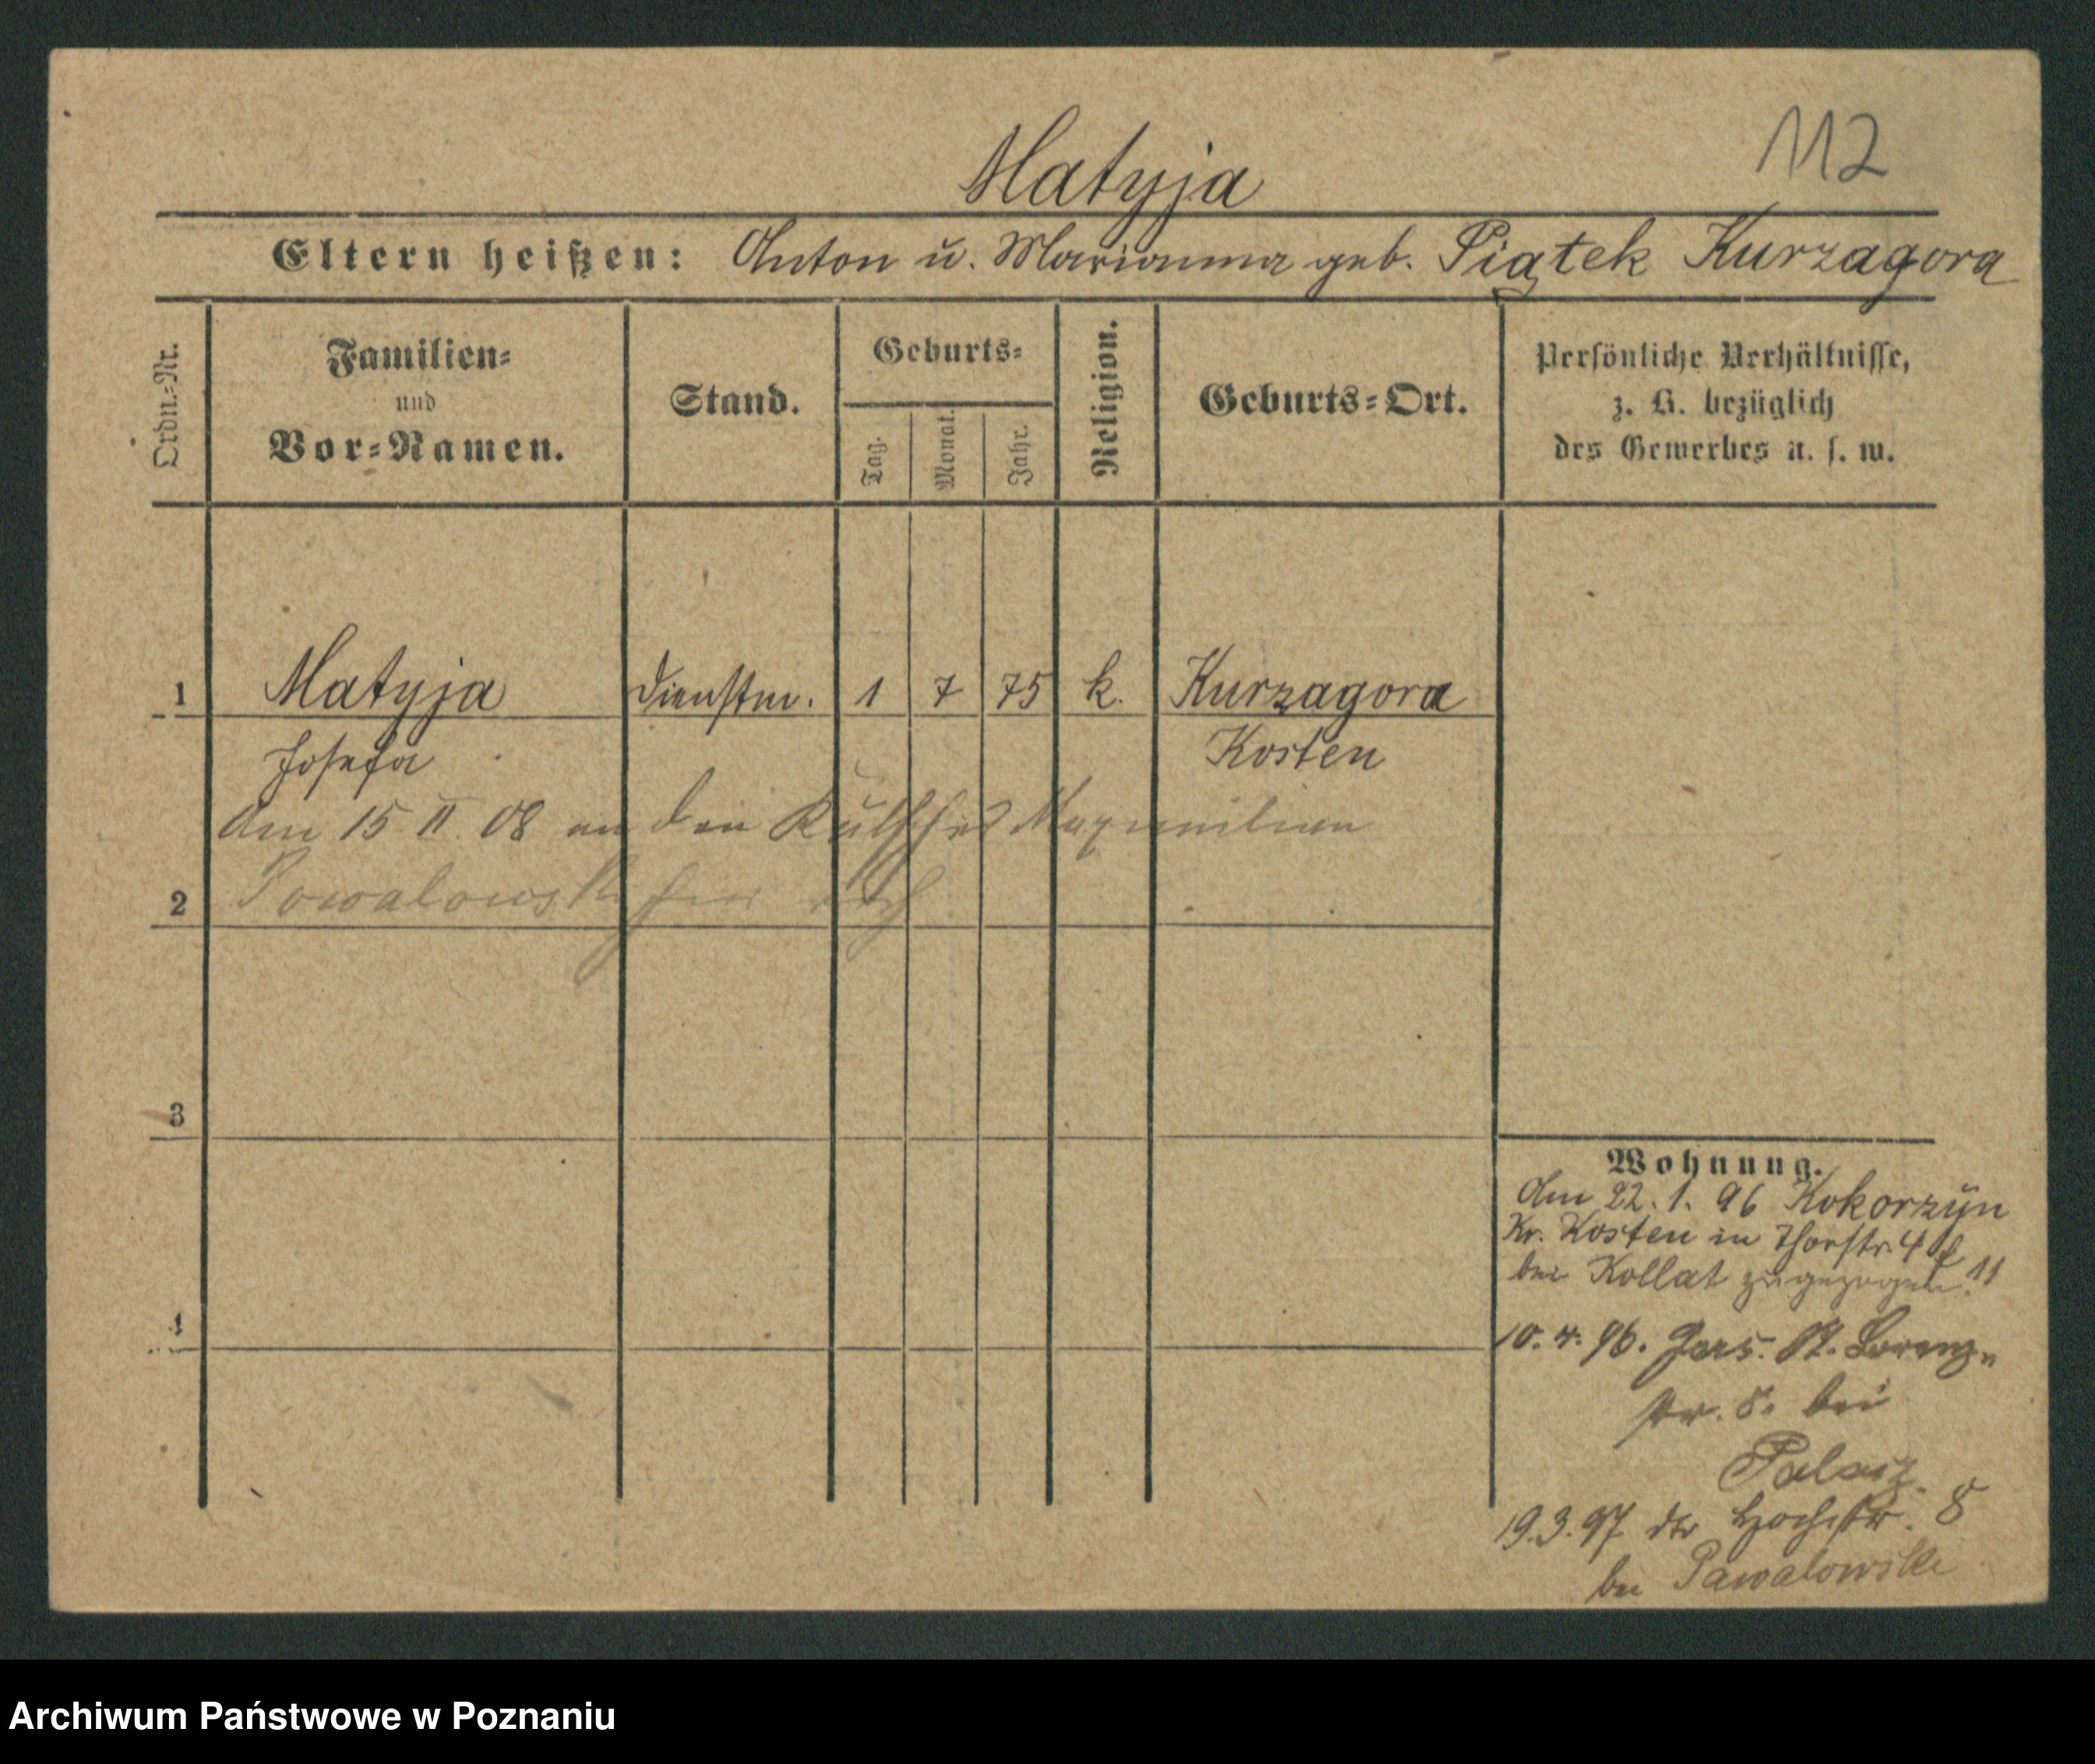 112
Matyja
Eltern heißen: Anton u. Marianna geb. Piątek Kurzagora
Ordn.-Nr.
Familien-
und
Vor-Namen.
Stand.
Geburts-
Tag.
Monat.
Jahr.
Religion.
Geburts-Ort.
Persönliche Verhältnisse,
z. B. bezüglich
des Gewerbes u. s. w.
1 Matyja Dienstm. 1 7 75 k. Kurzagora
Josefa Kosten
Am 15 II. 08 an den Maximilian
Powalowski
2
3
4
Wohnung.
Am 22. 1. 96 Kokorzyn
Kr. Kosten in Thorstr. 4
bei Kollat zugezogen. 11
10. 4. 96. St. Lorenz-
str. 5. bei
19.3.97 Hochstr. 8
bei Pawalowski
Archiwum Państwowe w Poznaniu